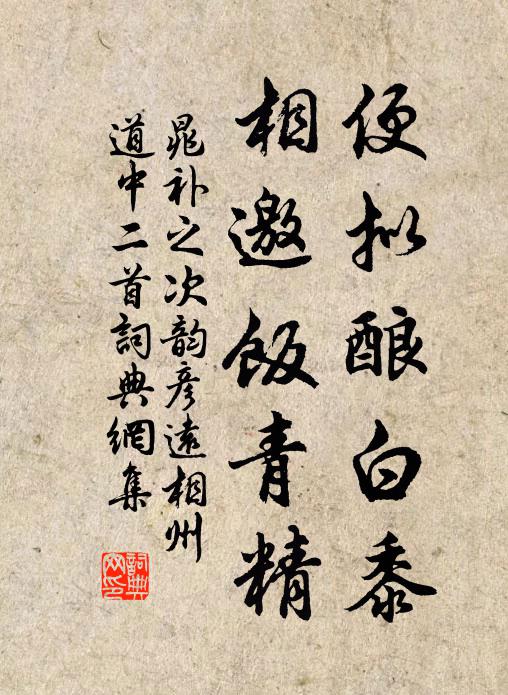 便拟酿白黍
相邀飯青精
晁补之次韵彦遠相州
道中二首詞典網集
詞典
网印